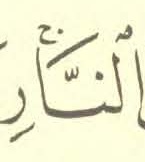 الْنَّارِۚ